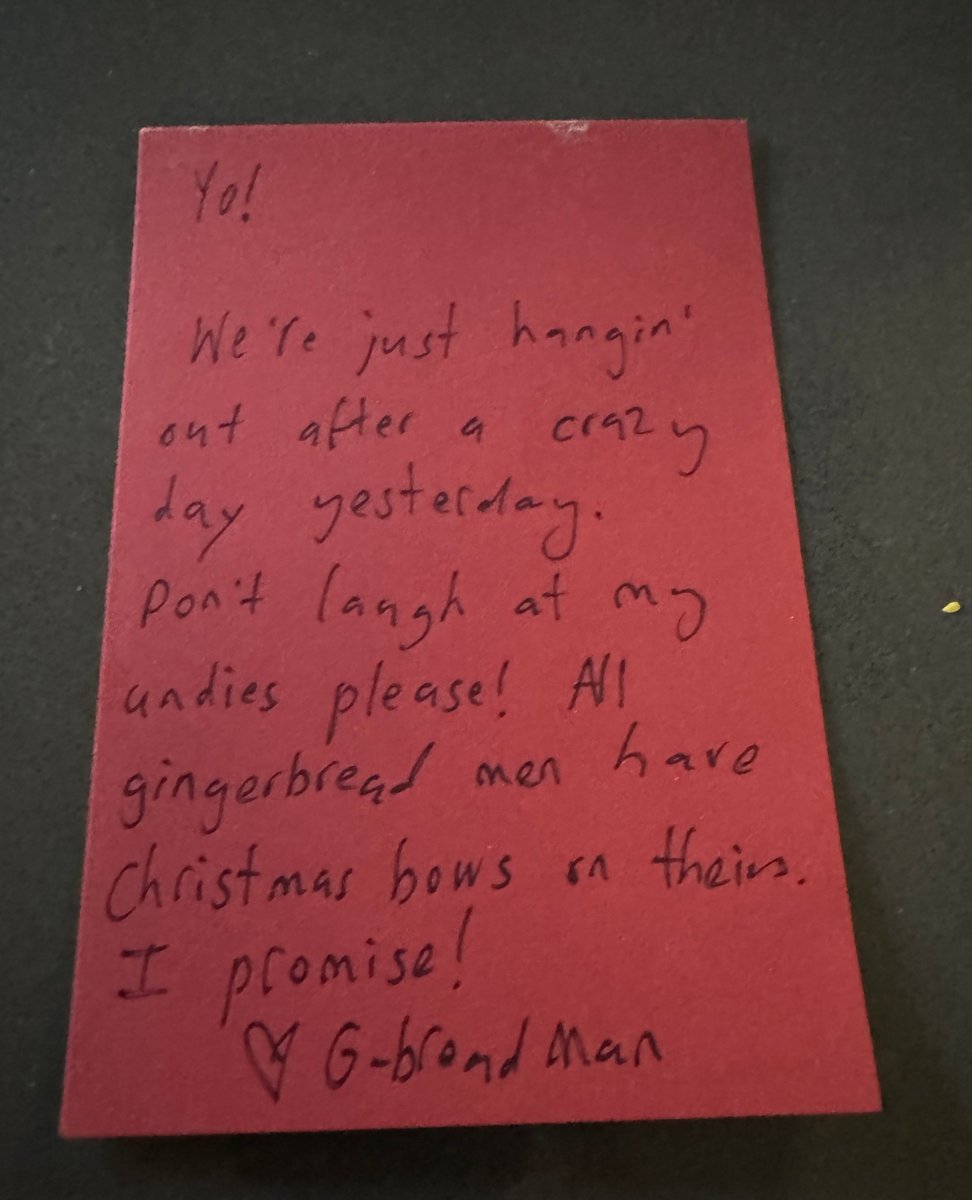 Yo!
We're just hangin'
out after a crazy
day yesterday.
Don't laugh at my
undies please! All
gingerbread men have
Christmas bows on theirs.
I promise!
♡ G-bread Man